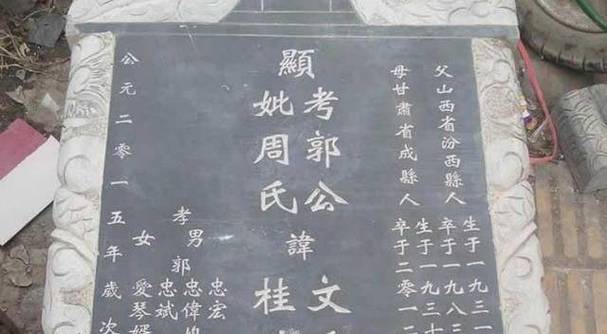 父山西省汾西縣人
生于一九三一
卒于一九八
母甘肅省成縣人
生于一九三
卒于二零一
顯
考郭公諱文
妣周氏桂
孝男郭
忠宏
忠偉
忠斌
女愛琴婿
公元二零一五年歲次